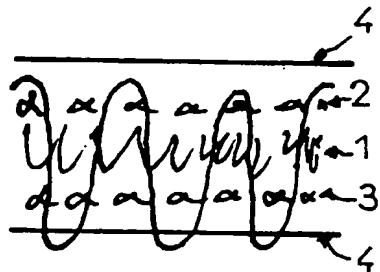 4
2
1
3
4